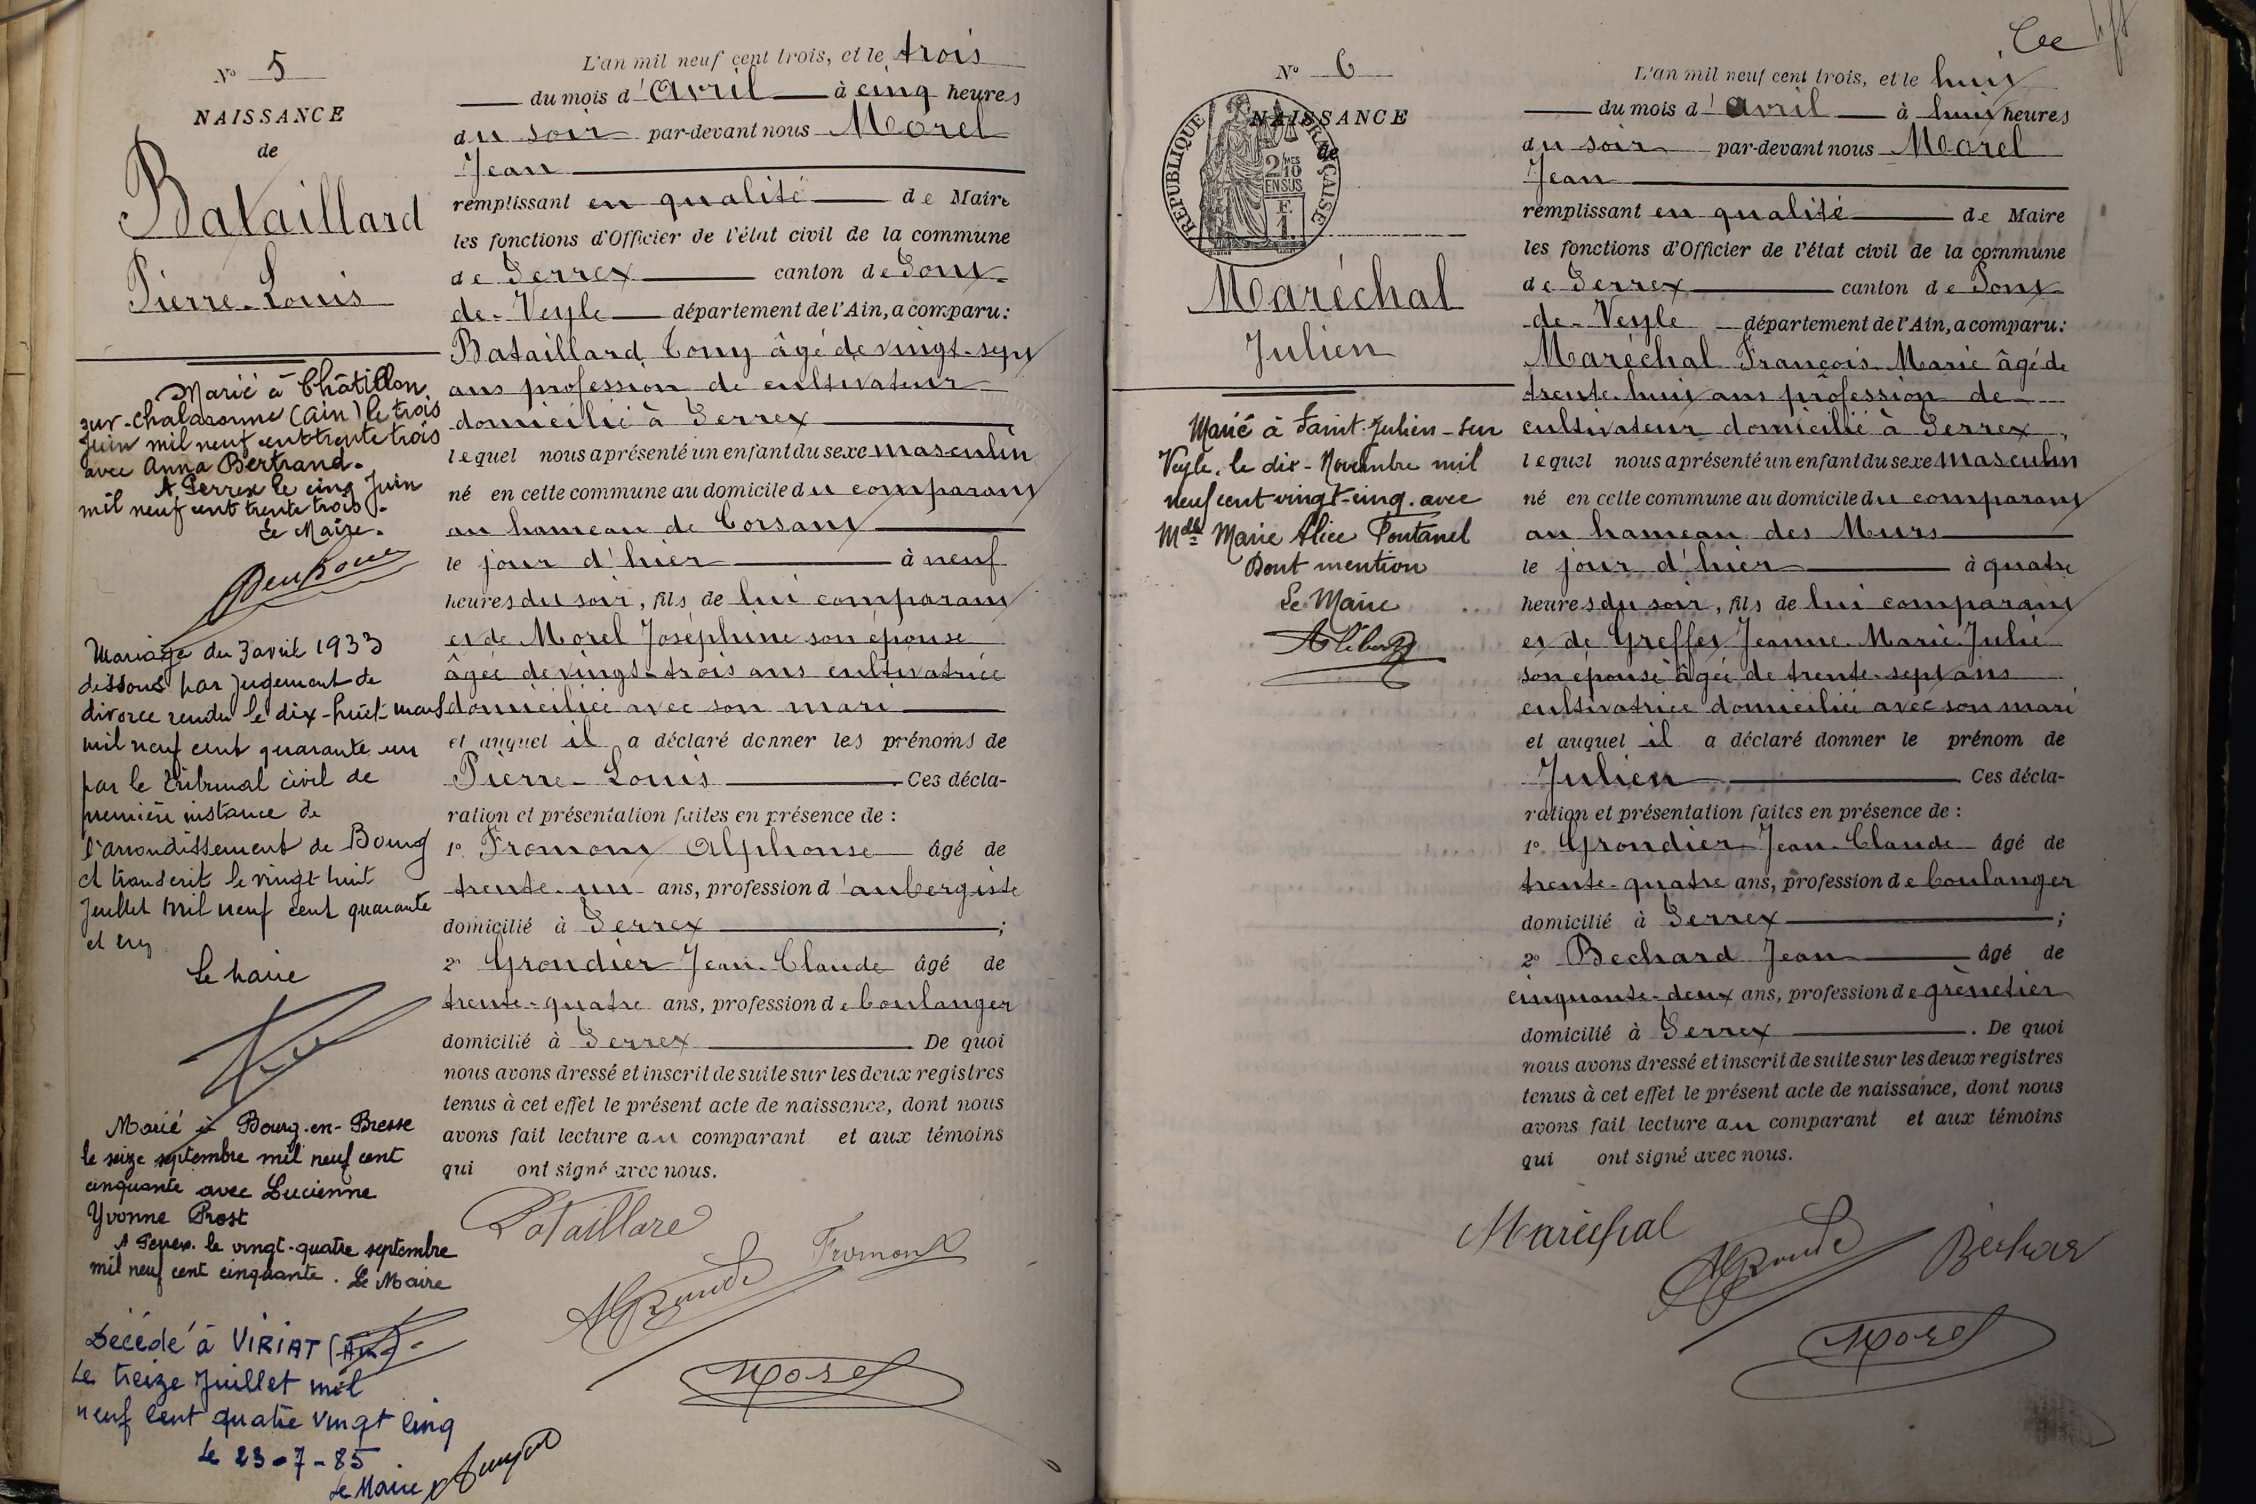 N° 5
NAISSANCE
de
Bataillard
Pierre-Louis
Marié à Châtillon
sur-Chalaronne (Ain) le trois
Juin mil neuf cent trente trois
avec Anna Bertrand.
A Perrex le cinq Juin
mil neuf cent trente trois.
Le Maire.
Mariage du 3 avril 1933
dissous par jugement de
divorce rendu le dix-huit mars
mil neuf cent quarante un
par le tribunal civil de
première instance de
l'arrondissement de Bourg
et transcrit le vingt huit
Juillet mil neuf cent quarante
et un
Le Maire
Marié à Bourg-en-Bresse
le seize septembre mil neuf cent
cinquante avec Lucienne
Yvonne Prost
A Perrex le vingt-quatre septembre
mil neuf cent cinquante. Le Maire
Décédé à VIRIAT (Ain)
Le treize Juillet mil
neuf cent quatre vingt cinq
Le 23-7-85
Le Maire
L'an mil neuf cent trois, et le trois
du mois d'Avril à cinq heures
du soir par-devant nous Morel
Jean
remplissant en qualité de Maire
les fonctions d'Officier de l'état civil de la commune
de Perrex canton de Pont-
de-Veyle département de l'Ain, a comparu:
Bataillard Tony âgé de vingt-sept
ans profession de cultivateur
domicilié à Perrex
lequel nous a présenté un enfant du sexe masculin
né en cette commune au domicile du comparant
au hameau de Corsant
le jour d'hier à neuf
heures du soir, fils de lui comparant
et de Morel Joséphine son épouse
âgée de vingt-trois ans cultivatrice
domiciliée avec son mari
et auquel il a déclaré donner les prénoms de
Pierre-Louis Ces décla-
ration et présentation faites en présence de :
1° Fromont Alphonse âgé de
trente-un ans, profession d'aubergiste
domicilié à Perrex ;
2° Grondier Jean-Claude âgé de
trente-quatre ans, profession de boulanger
domicilié à Perrex De quoi
nous avons dressé et inscrit de suite sur les deux registres
tenus à cet effet le présent acte de naissance, dont nous
avons fait lecture au comparant et aux témoins
qui ont signé avec nous.
Bataillard
Fromont
Morel
N° 6
NAISSANCE
de
RÉPUBLIQUE FRANÇAISE
2/10
EN SUS
Maréchal
Julien
Marié à Saint-Julien-sur
Veyle, le dix-Novembre mil
neuf cent vingt-cinq. avec
Mdlle Marie Alice Fontanel
Dont mention
Le Maire
L'an mil neuf cent trois, et le huit
du mois d'avril à huit heures
du soir par-devant nous Morel
Jean
remplissant en qualité de Maire
les fonctions d'Officier de l'état civil de la commune
de Perrex canton de Pont
de-Veyle département de l'Ain, a comparu:
Maréchal François-Marie âgé de
trente-huit ans profession de
cultivateur domicilié à Perrex,
lequel nous a présenté un enfant du sexe masculin
né en cette commune au domicile du comparant
au hameau des Murs
le jour d'hier à quatre
heures du soir, fils de lui comparant
et de Greffet Jeanne-Marie-Julie
son épouse âgée de trente-sept ans
cultivatrice domiciliée avec son mari
et auquel il a déclaré donner le prénom de
Julien Ces décla-
ration et présentation faites en présence de :
1° Grondier Jean-Claude âgé de
trente-quatre ans, profession de boulanger
domicilié à Perrex ;
2° Bechard Jean âgé de
cinquante-deux ans, profession de grènetier
domicilié à Perrex . De quoi
nous avons dressé et inscrit de suite sur les deux registres
tenus à cet effet le présent acte de naissance, dont nous
avons fait lecture au comparant et aux témoins
qui ont signé avec nous.
Maréchal
Morel